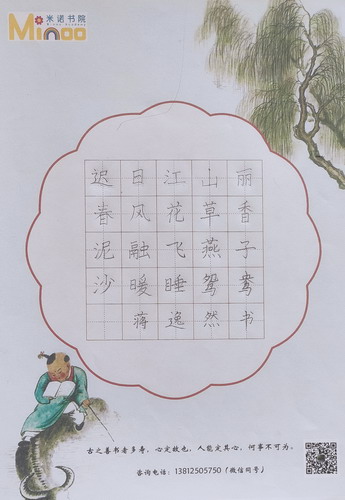 米诺书院
Minoo
迟日江山丽
春风花草香
泥融飞燕子
沙暖睡鸳鸯
蒋逸然书
古之善书者多寿，心定故也，人能定其心，何事不可为。
咨询电话：13812505750（微信同号）